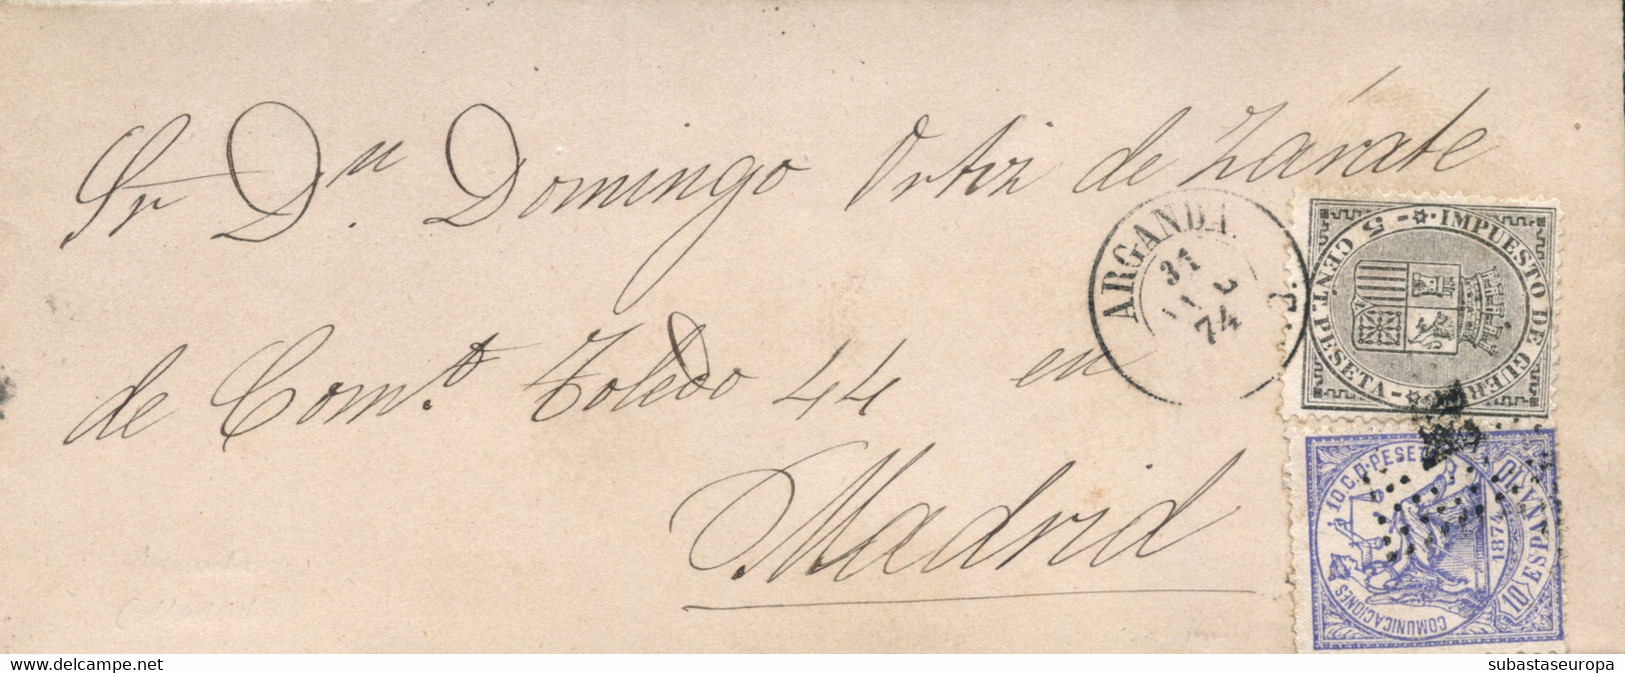 Sr Dn. Domingo Ortiz de Zárate
de Comt. Toledo 44 en
Madrid
ARGANDA.
31
74
.3.
5 CENT. PESETA
IMPUESTO DE GUERRA
10 C. D. PESETA
COMUNICACIONES
1874
ESPAÑA
10
subastaseuropa